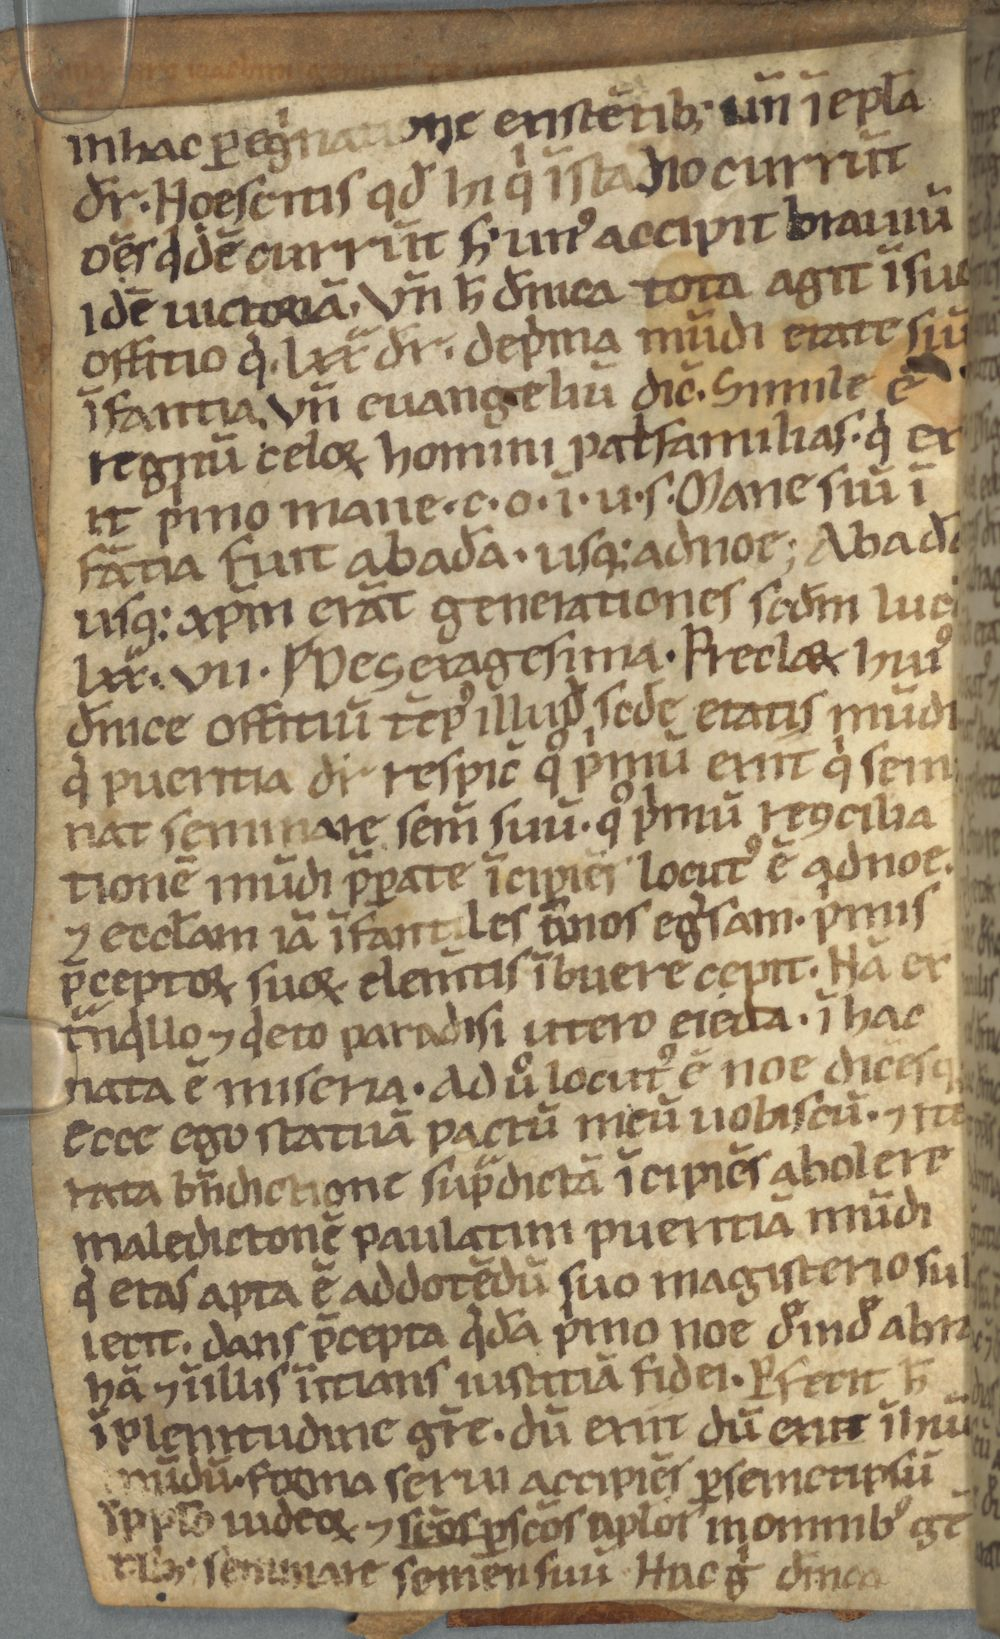 in hac ꝑegⁱnatione existētib; uñ ī epl̄a
dr̄. Ño escitis qđ hi qⁱ ī stadio currūt
om̄s qⁱdē currūt sꝫ unꝰ accipit brauiū
idē uictoriā. Vñ h̄ dn̄ica tota agit ī suo
offitio qͥ. lxx dr̄. de pⁱma mūdi etate siū
īfantia. Vñ euangeliū dic̄. Simile ē
regnū celoꝝ homini pat̄familias. qͥ ex
iit pⁱmo mane. c. o. ī. u. s. Mane siū ī
fātia fuit ab adā. usqꝫ ad noe; Ab adā
usqꝫ xp̄m erāt generationes scd̄m lucā
lxx. vii. IN Sexagesima. Preclaꝝ huiꝰ
dn̄ice offitiū tēpꝰ illud scd̄e etatis mūdi
qͥ pueritia dr̄ respic̄ qͦ pⁱmū exiit qⁱ semi
nat seminare sem̄ suū. qͦ pⁱmū reꝯcilia
tionē mūdi p̄parate īcipiēs locutꝰ ē ad noe.
⁊ eccl̄am iā īfantiles annos egͤssam. pⁱmis
p̄ceptoꝝ suoꝝ elem̄tis ībuere cepit. Nā ex
⁊ qͣdeto paradisi utero eiecta. ī hac
nata ē miseria. Ad uͦ locutꝰ ē noe dicēs
Ecce ego statuā pactū meū uobiscū. ⁊ ite
rata bn̄dictione sup̄dictā īcipiēs abolere
maledictonē paulatim pueritiā mūdi
qͥ etas apta ē ad docēdū suo magisterio sub
iecit. dans p̄cepta qͣdā pⁱmo noe đind̄ abra
hā ⁊ ī illis īitians iustitiā fidei. Perfecit h̄
ī plenitudine gr̄e. dū exiit dū exiit ī hūc
mūdū. forma serui accipiēs ꝑ semetipsū
ī ppl̄o iudeoꝝ ⁊ scōs ꝑ scōs apl̄os in omnibꝰ gē
tibꝫ seminare semen suū. Hac gͦ dn̄ica